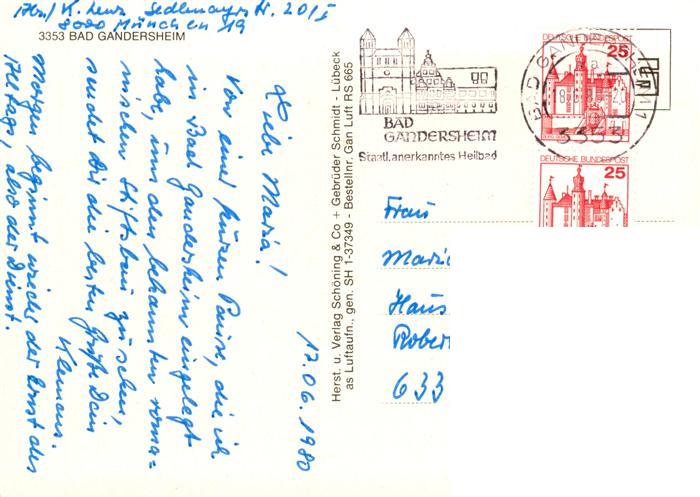 Abs/ K. Lenz Sedlmayrstr. 20/I
8000 München 19
3353 BAD GANDERSHEIM
17.06.1980
Liebe Maria!
Von einer kurzen Pause, die ich
in Bad Gandersheim eingelegt
habe, um den bekannten roma-
nischen Stiftsbau zu sehen,
sendet Dir die besten Grüße Dein
Klemens.
Morgen beginnt wieder der Ernst des
Alltags, also der Dienst.
Herst. u. Verlag Schöning & Co + Gebrüder Schmidt - Lübeck
as Luftaufn., gen. SH 1-37349 - Bestellnr. Gan Luft RS 665
BAD
GANDERSHEIM
Staatl. anerkanntes Heilbad
BAD GANDERSHEIM 1
3353
DEUTSCHE BUNDESPOST
25
DEUTSCHE BUNDESPOST
25
Frau
Maria
Haus
Rober
633